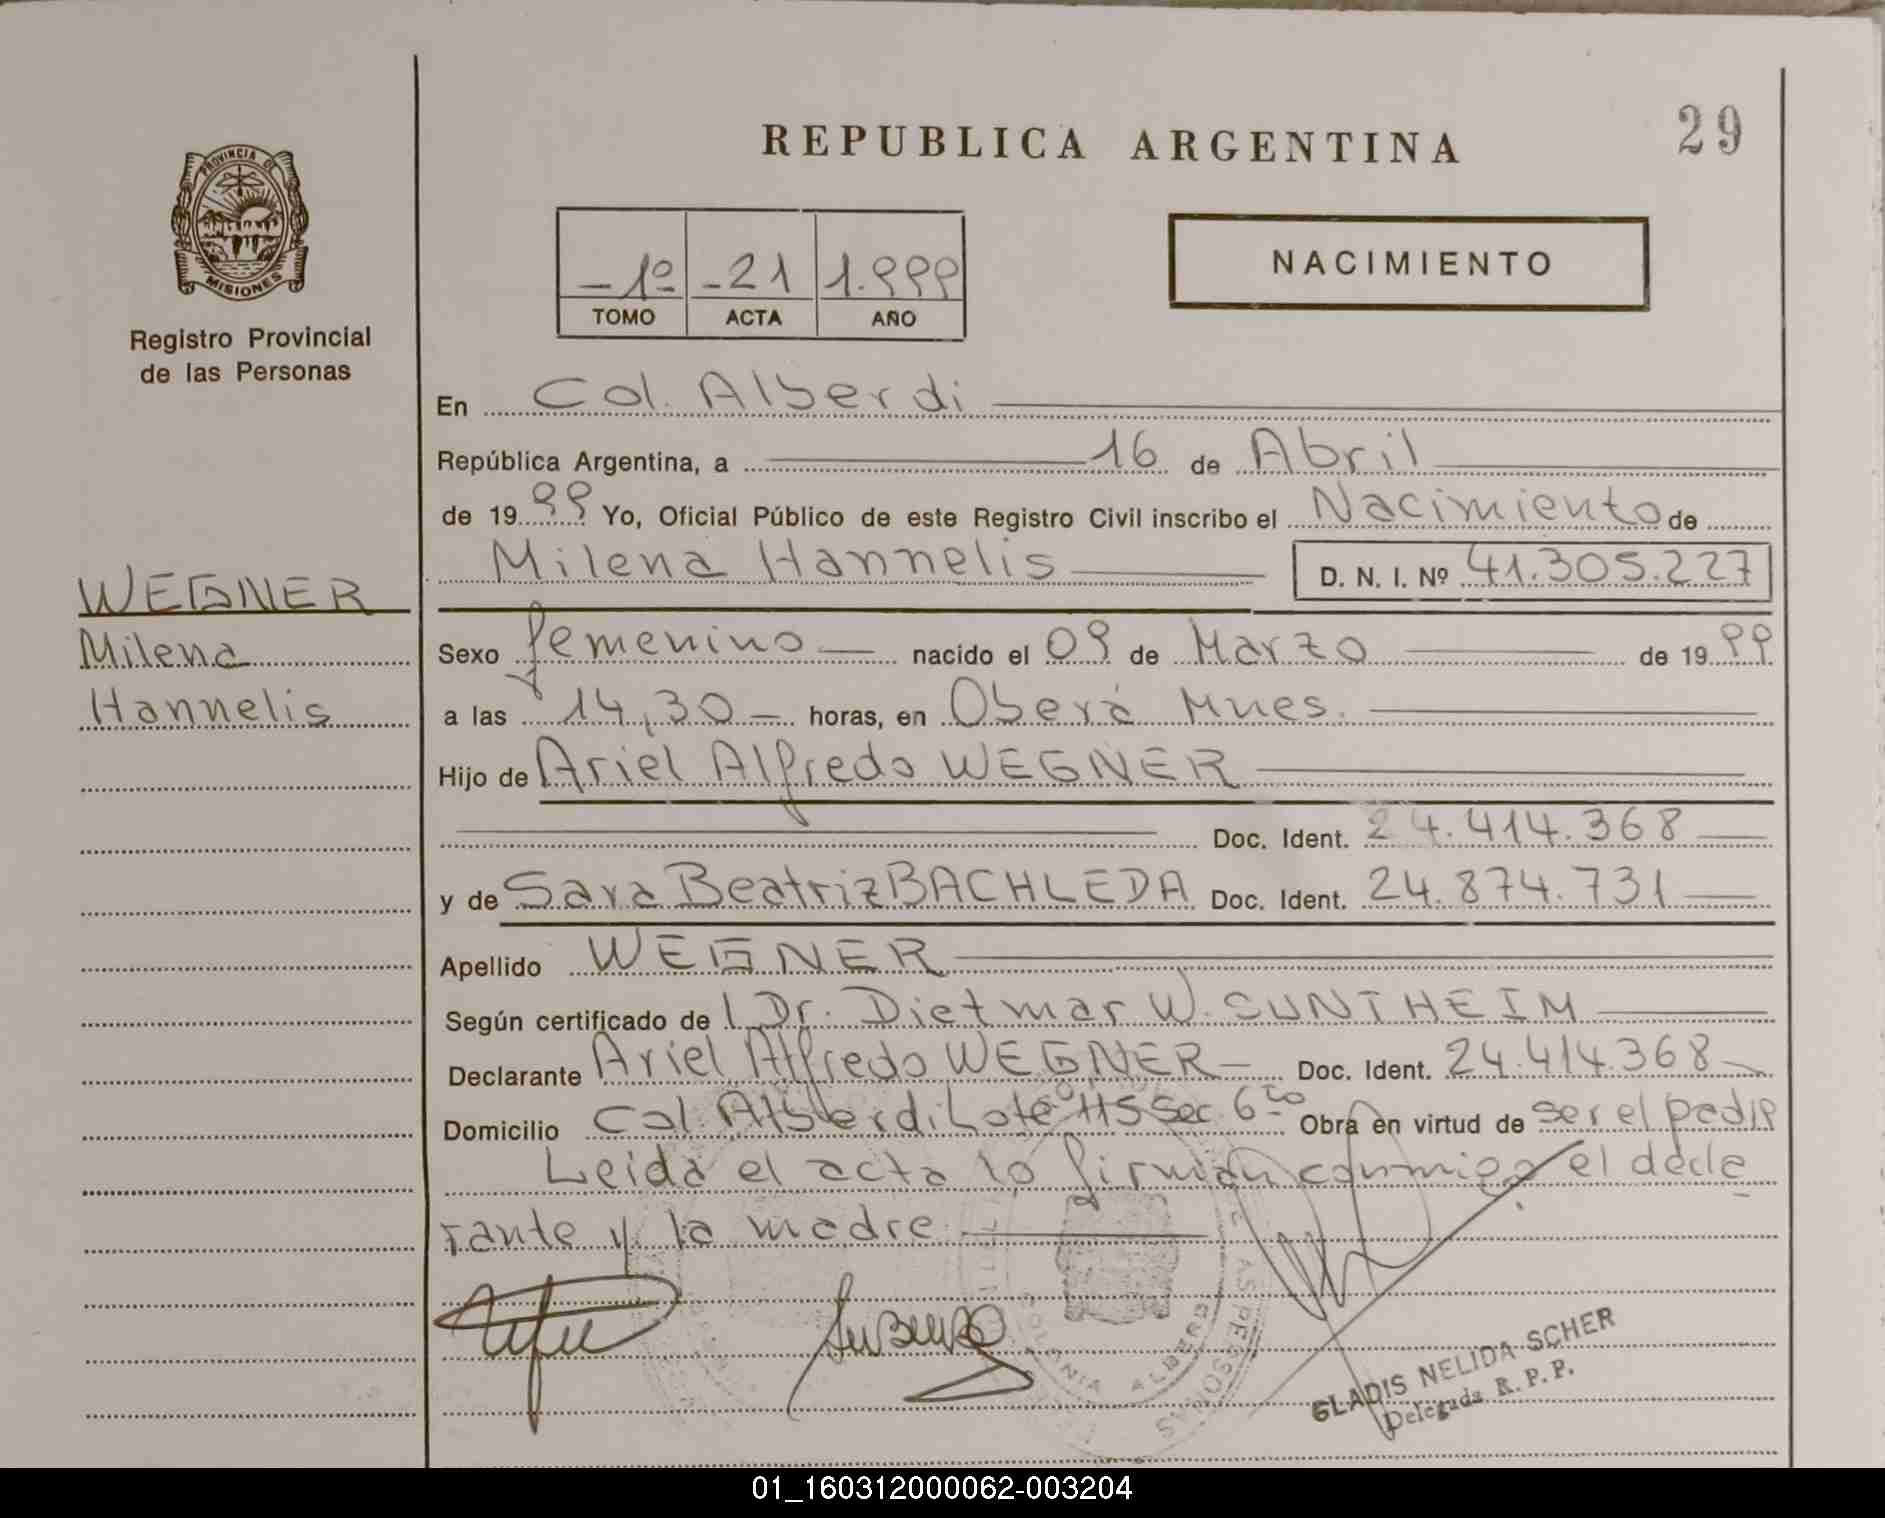 REPUBLICA ARGENTINA
29
PROVINCIA DE
MISIONES
Registro Provincial
de las Personas
1º 21 1.999
TOMO ACTA AÑO
NACIMIENTO
En Col. Alberdi
República Argentina, a 16 de Abril
de 1999 Yo, Oficial Público de este Registro Civil inscribo el Nacimiento de
Milena Hannelis D. N. I. Nº 41.305.227
WEGNER
Milena
Hannelis
Sexo femenino nacido el 09 de Marzo de 1999
a las 14,30 horas, en Oberá Mnes.
Hijo de Ariel Alfredo WEGNER
Doc. Ident. 24.414.368
y de Sara Beatriz BACHLEDA Doc. Ident. 24.874.731
Apellido WEGNER
Según certificado de l Dr. Dietmar W. SUNTHEIM
Declarante Ariel Alfredo WEGNER Doc. Ident. 24.414.368
Domicilio Col. Alberdi Lote 115 Sec. 6ta Obra en virtud de ser el padre
Leida el acta lo firman conmigo el decla
rante y la madre
COLONIA ALBERDI
GLADIS NELIDA SCHER
Delegada R. P. P.
01_160312000062-003204